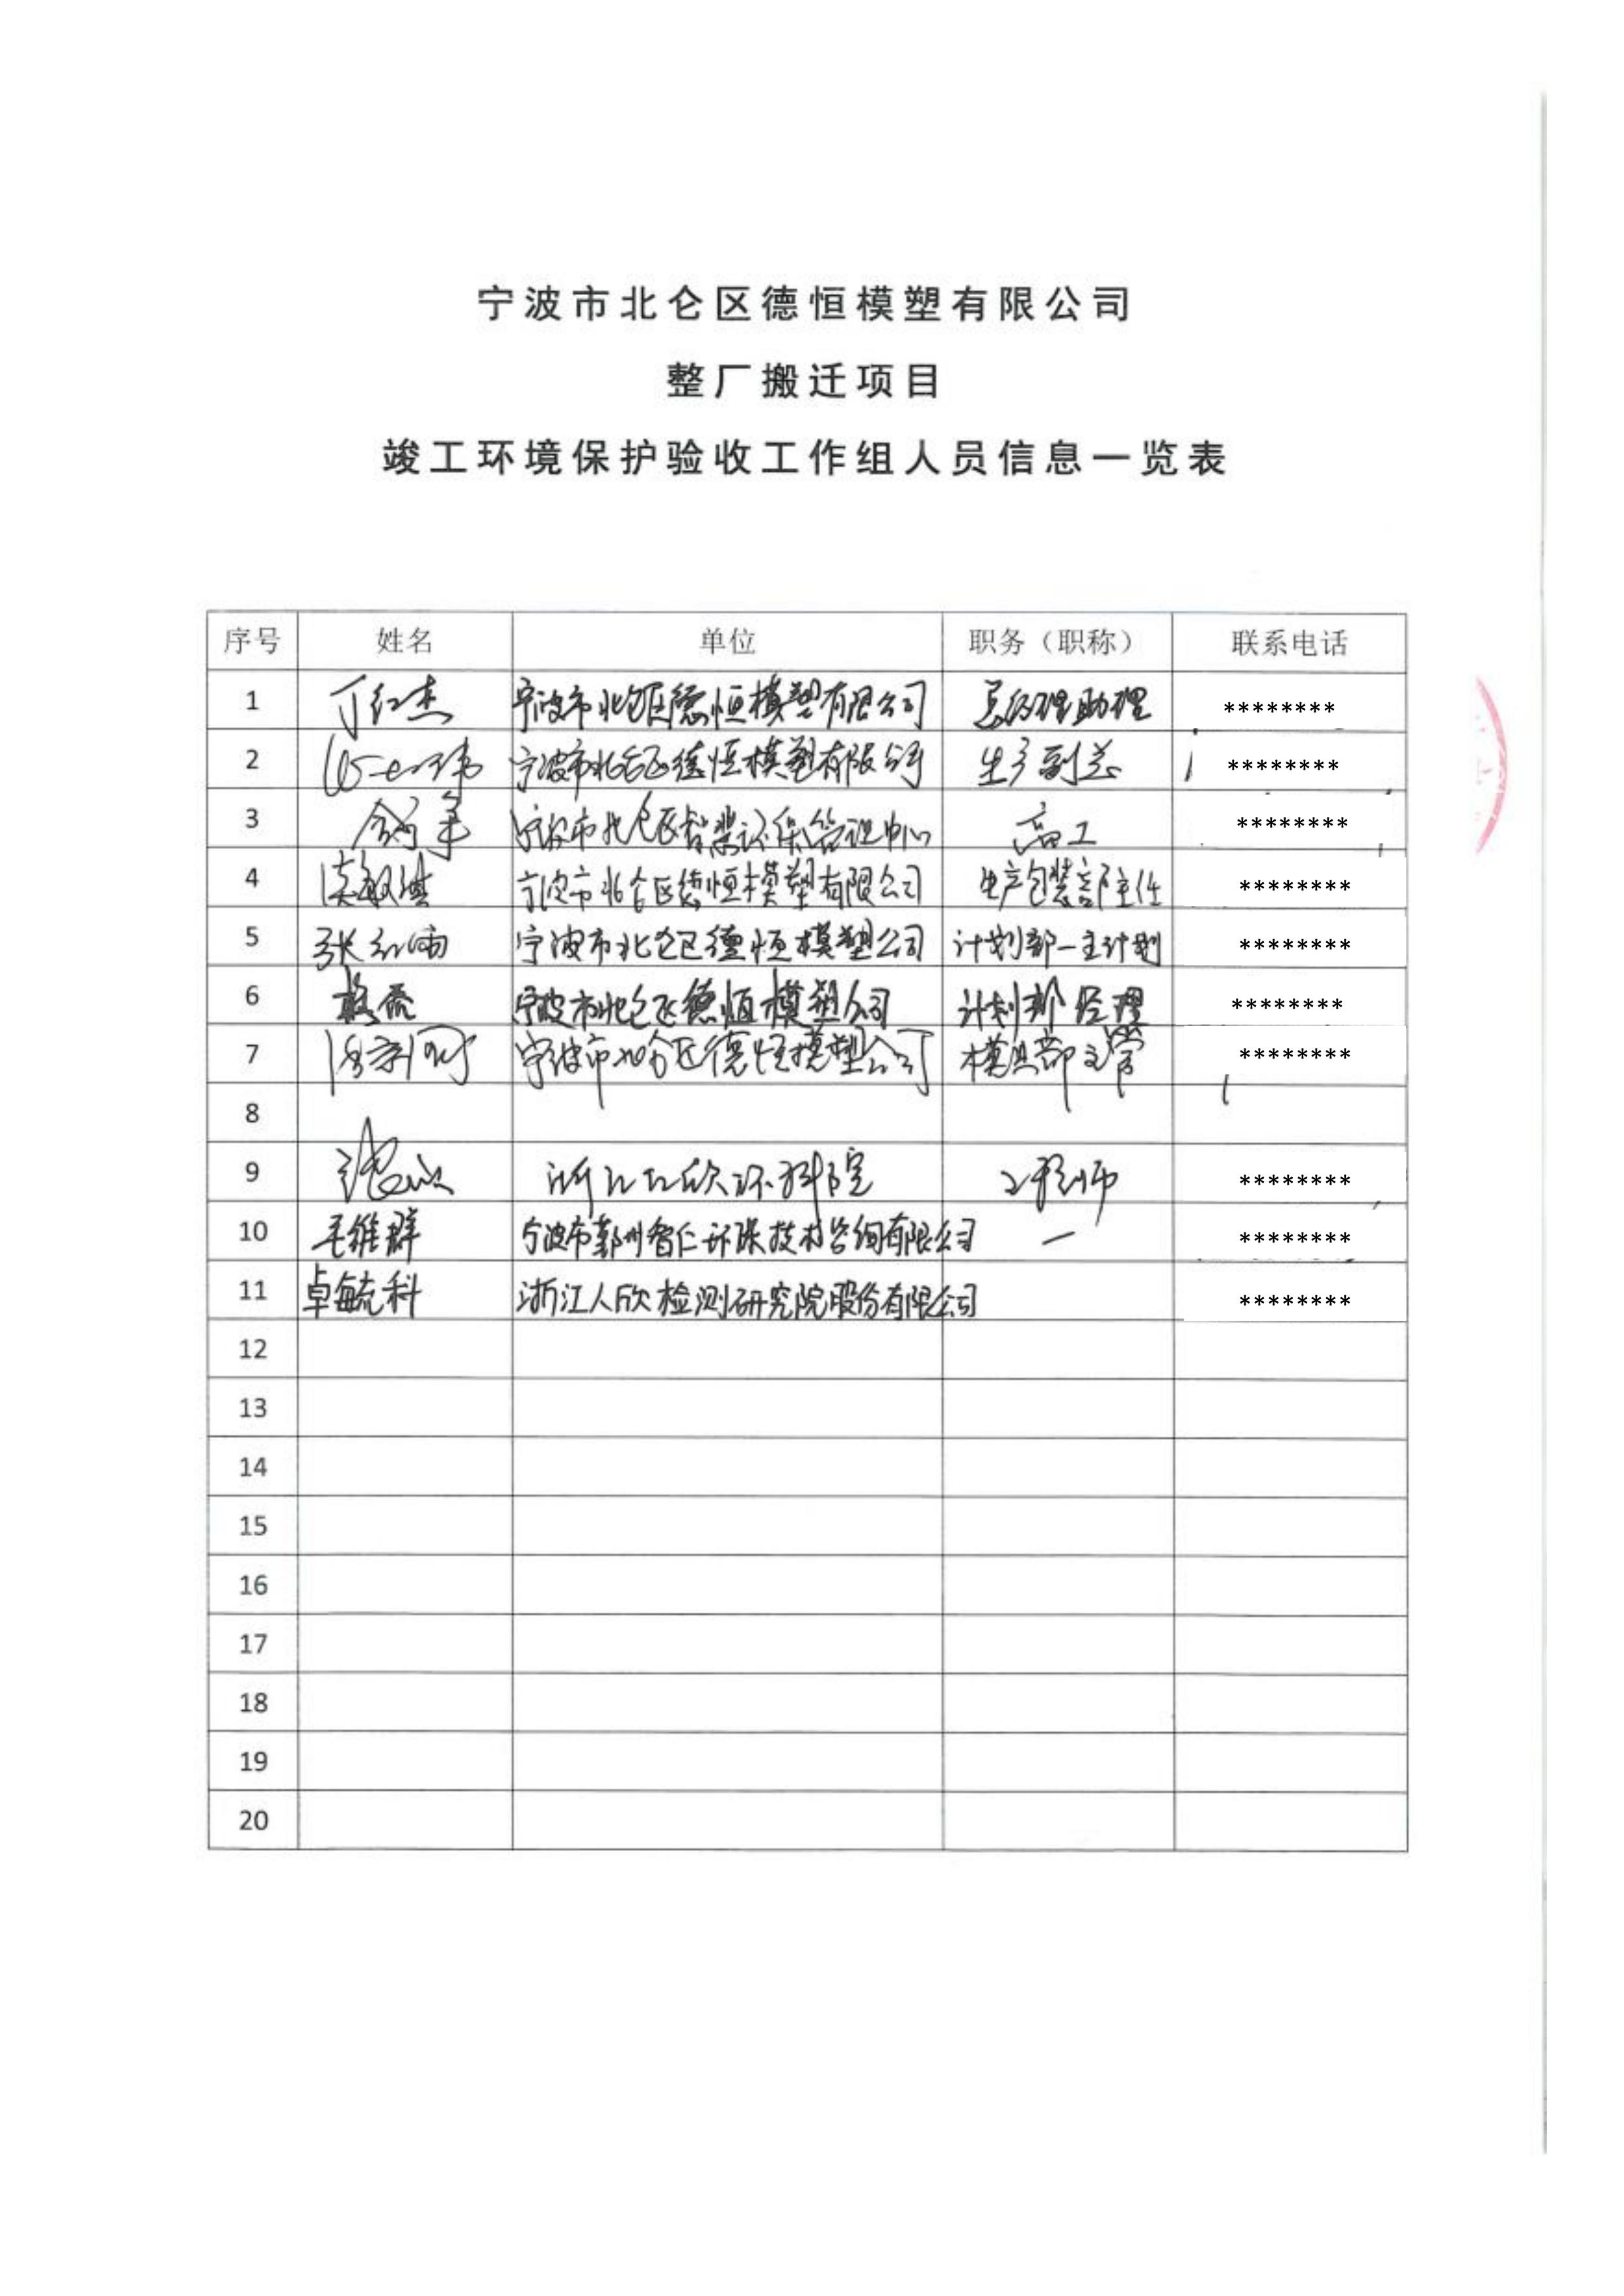 宁波市北仑区德恒模塑有限公司
整厂搬迁项目
竣工环境保护验收工作组人员信息一览表
序号 姓名 单位 职务（职称） 联系电话
1 丁红杰 宁波市北仑区德恒模塑有限公司 总经理助理 ********
2 宁波市北仑区德恒模塑有限公司 生产副总 ********
3 宁波市北仑区 环保管理中心 高工 ********
4 宁波市北仑区德恒模塑有限公司 生产包装部主任 ********
5 张 宁波市北仑区德恒模塑公司 计划部-主计划 ********
6 宁波市北仑区德恒模塑公司 计划部 经理 ********
7 宁波市北仑区德恒模塑公司 模具部主管 ********
8
9 浙江仁欣环科院 工程师 ********
10 毛维群 宁波市鄞州智仁环保技术咨询有限公司 一 ********
11 卓毓科 浙江人欣检测研究院股份有限公司 ********
12
13
14
15
16
17
18
19
20